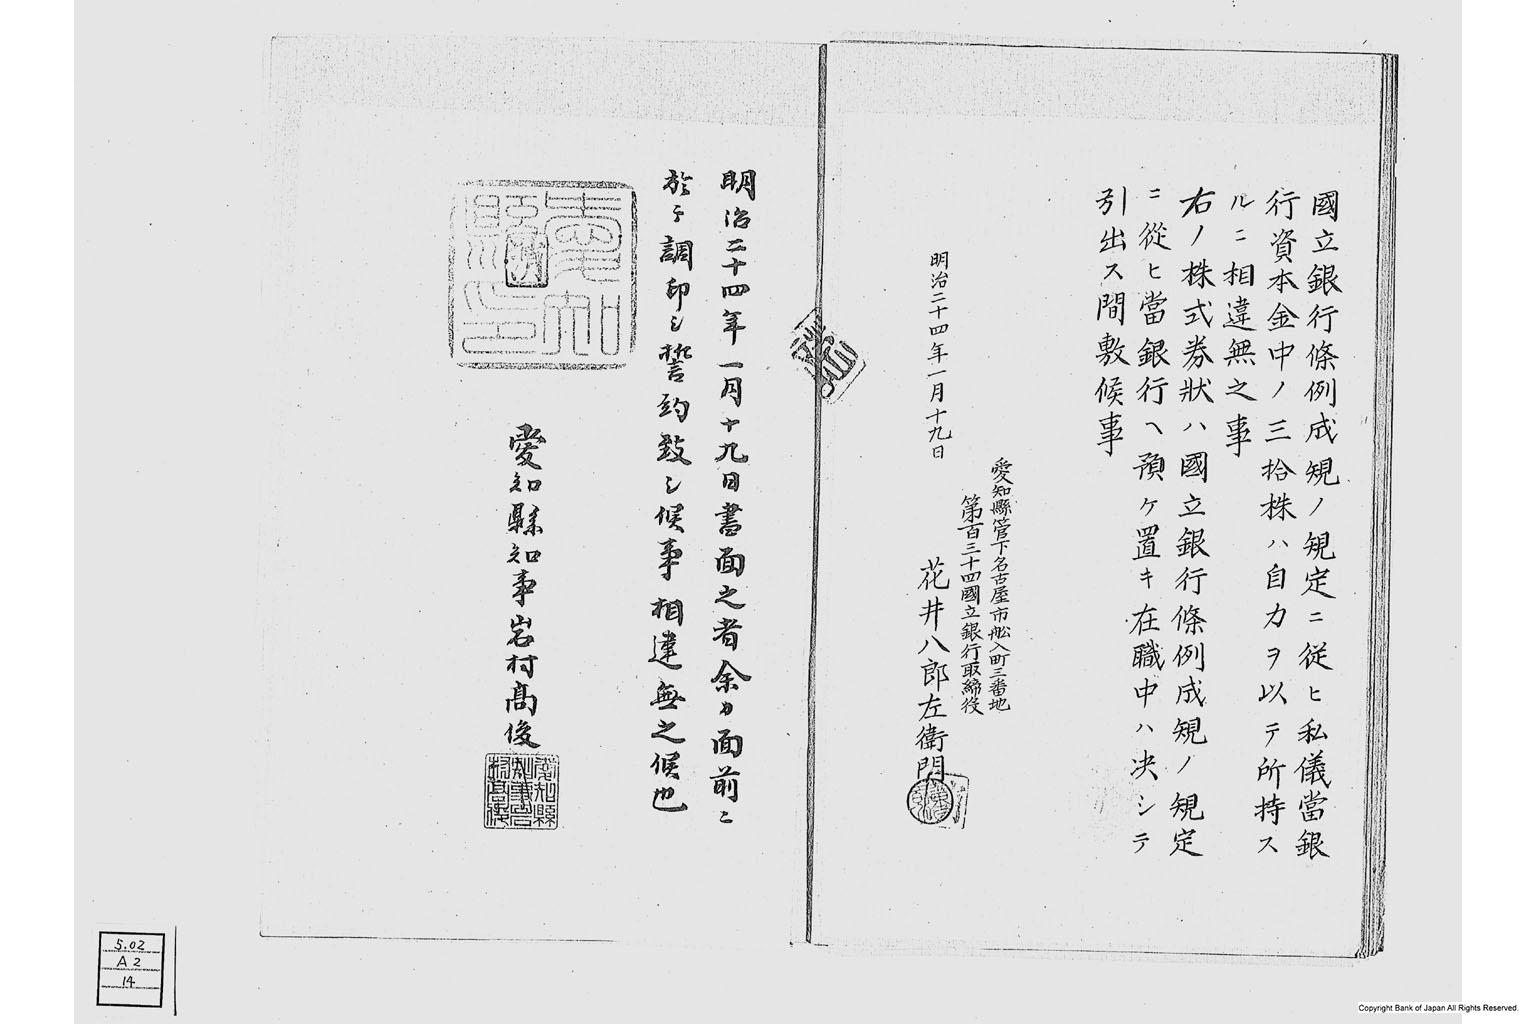 國立銀行條例成規ノ規定ニ従ヒ私儀當銀
行資本金中ノ三拾株ハ自力ヲ以テ所持ス
ルニ相違無之事
右ノ株式券狀ハ國立銀行條例成規ノ規定
ニ從ヒ當銀行ヘ預ケ置キ在職中ハ决シテ
引出ス間敷候事
愛知縣管下名古屋市舩入町三番地
第百三十四國立銀行取締役
明治二十四年一月十九日
花井八郎左衛門
明治二十四年一月十九日書面之者余カ面前ニ
於テ調印シ誓約致シ候事相違無之候也
愛知縣知事岩村髙俊
愛知縣印
5.02
A2
14
Copyright Bank of Japan All Rights Reserved.